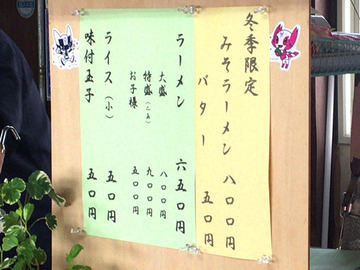 冬季限定
みそラーメン 八〇〇円
バター 五〇円
ラーメン 六五〇円
大盛 八〇〇円
特盛(二玉) 九〇〇円
お子様 五〇〇円
ライス(小) 五〇円
味付玉子 五〇円